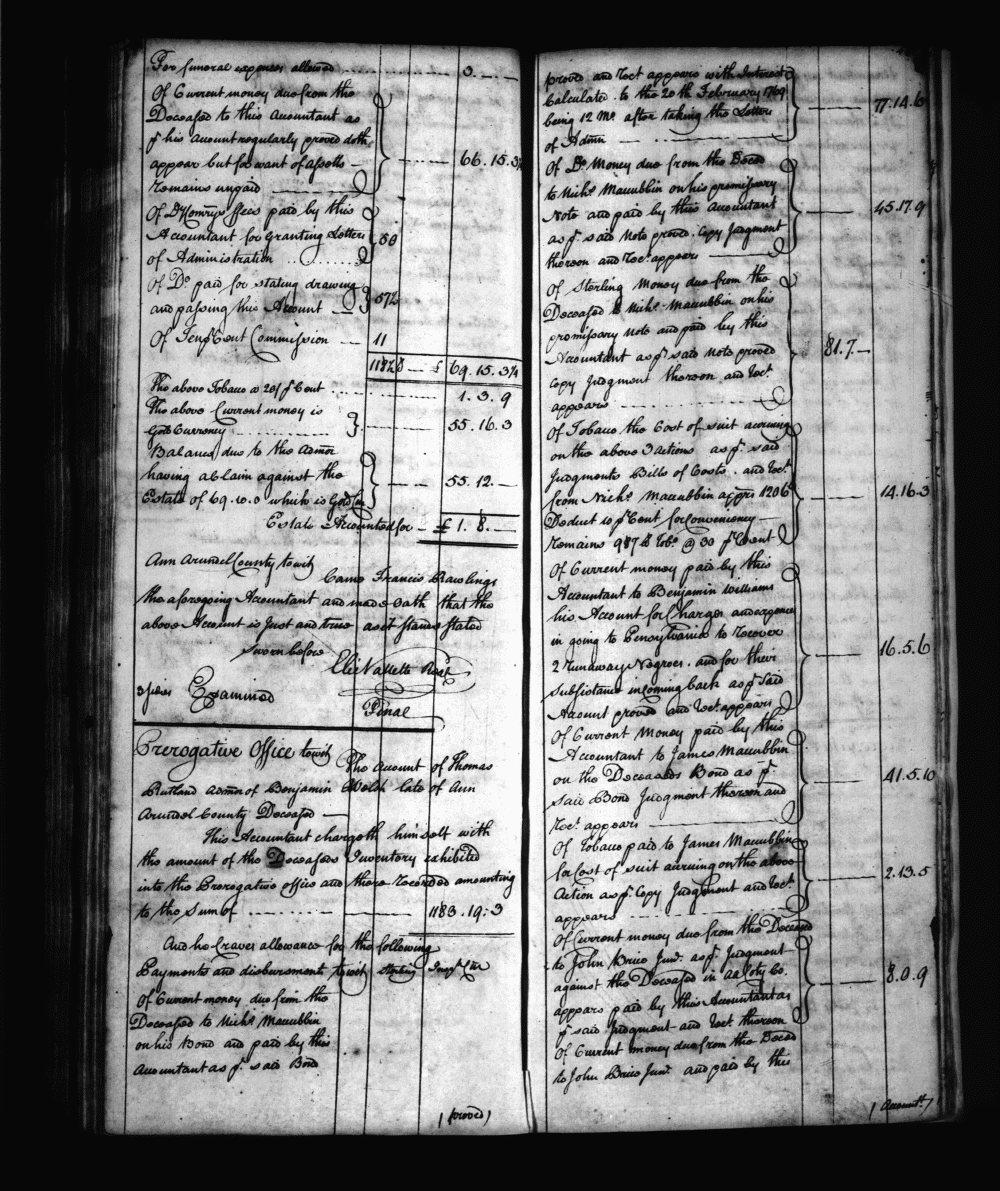 For funeral expences allowed .................... 3. — . —
Of Current money due from the
Deceased to this Accountant as
pr. his Account regularly proved doth
appear but for want of assetts — — 66.15.3¾
Remains unpaid
Of Do. Henrys ffees paid by this
Accountant for Granting Letters 50
of Administration
Of Do. paid for stating drawing
and passing this Account 572
Of Ten pr Cent Commission — 11
£ 69.15.3¾
The above Tobacco a 20/ pr Cent ............ 1.3.9
The above Current money is
Gold Currency ............ 55.16.3
Balance due to the Admor
having a Claim against the
Estate of 69.10.0 which is Gold Cury — 55.12.—
Estate Accounted for — £ 1.8.—
Ann Arundel County to wit
Came Francis Rawlings
the aforegoing Accountant and made Oath that the
above Account is Just and true as it stands stated
Sworn before
Elie Vallette Regr
3 sides Examined
Final
Prerogative Office to wit
The Account of Thomas
Rutland Admor of Benjamin Welsh late of Ann
Arundel County Deceased —
This Accountant chargeth himself with
the amount of the Deceaseds Inventory exhibited
into the Prerogative office and there Recorded amounting
to the Sum of ........... 1183.19:3
And he Craves allowance for the following
Payments and disbursments to wit Sterling Inspt. Cur
Of Current money due from the
Deceased to Nichs. Maccubbin
on his Bond and paid by this
Accountant as pr. said Bond
(proved)
proved and Rect appears with Interest
Calculated to the 20th February 1769
being 12 Mo. after taking the Letters — 77.14.6
of Admn —
Of Do. Money due from the Deced
to Nichs. Maccubbin on his promissary
Note and paid by this Accountant — 45.17.9
as pr. said Note proved Copy Judgment
thereon and Rect. appears
Of Sterling Money due from the
Deceased to Nichs. Maccubbin on his
promissary note and paid by this
Accountant as pr. said Note proved 81.7—
Copy Judgment thereon and Rect.
appears
Of Tobacco the Cost of suit accruing
on the above 3 actions as pr. said
Judgments Bills of Costs. and Rect.
from Nichs. Maccubbin apprs 1206 — 14.16.3
Deduct 10 pr. Cent for Conveniency —
Remains 987 lb Tobo. @ 30 pr Cent
Of Current money paid by this
Accountant to Benjamin Williams
his Account for Charges and expence
in going to Pensylvania to Recover — 16.5.6
2 Runaway Negroes. and for their
Subsistance in coming back as pr said
Account proved and Rect. appears
Of Current Money paid by this
Accountant to James Maccubbin
on the Deceaseds Bond as pr. — 41.5.10
said Bond Judgment thereon and
Rect. appears
Of Tobacco paid to James Maccubbin
for Cost of suit accruing on the above
Action as pr. Copy Judgment and Rect. — 2.13.5
appears
Of Current money due from the Deceased
to John Brice Junr. as pr. Judgment
against the Deceased in aa Coty Co. — 8.0.9
appears paid by this Accountant as
pr said Judgment and Rect thereon
Of Current money due from the Deced
to John Brice Junr and paid by this
(Accountt.)